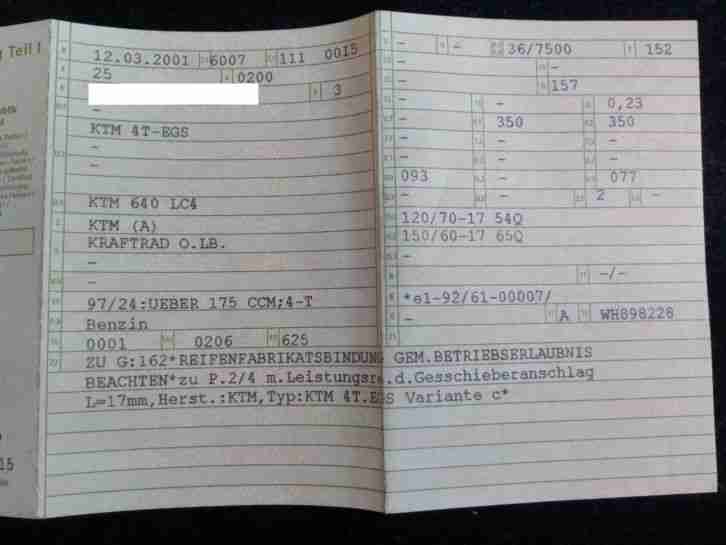 g Teil I
12.03.2001 6007 111 0015
25 0200
3
-
KTM 4T-EGS
-
-
KTM 640 LC4
KTM (A)
KRAFTRAD O.LB.
-
-
97/24:UEBER 175 CCM;4-T
Benzin
0001 0206 625
- - 36/7500 152
- -
- 157
- - 0,23
- 350 350
- - -
- - -
093 - 077
- - 2 -
120/70-17 54Q
150/60-17 65Q
-
-/-
*e1-92/61-00007/
- A WH898228
ZU G:162*REIFENFABRIKATSBINDUNG GEM.BETRIEBSERLAUBNIS
BEACHTEN*zu P.2/4 m.Leistungsre.d.Gesschieberanschlag
L=17mm,Herst.:KTM,Typ:KTM 4T.EGS Variante c*
15